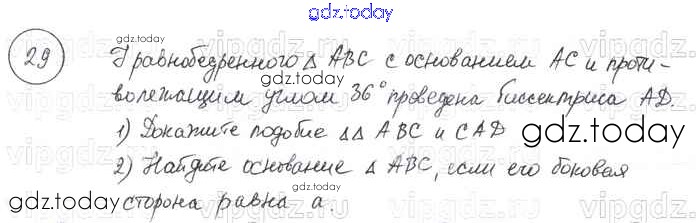 gdz.today
29
У равнобедренного Δ ABC с основанием AC и проти-
gdz.today
волежащим углом 36° проведена биссектриса AD.
1) Докажите подобие ΔΔ ABC и CAD
gdz.today
2) Найдите основание Δ ABC, если его боковая
gdz.today
сторона равна a.